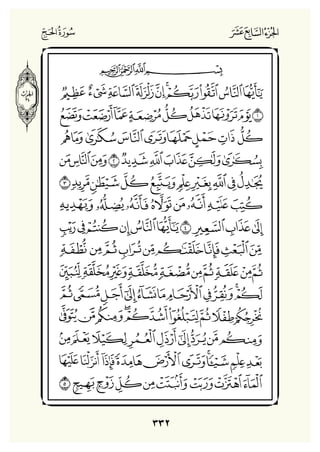 الجزء السابع عشر
سورة الحج
بِسْمِ اللَّهِ الرَّحْمَٰنِ الرَّحِيمِ
يَا أَيُّهَا النَّاسُ اتَّقُوا رَبَّكُمْ إِنَّ زَلْزَلَةَ السَّاعَةِ شَيْءٌ عَظِيمٌ
١ يَوْمَ تَرَوْنَهَا تَذْهَلُ كُلُّ مُرْضِعَةٍ عَمَّا أَرْضَعَتْ وَتَضَعُ
كُلُّ ذَاتِ حَمْلٍ حَمْلَهَا وَتَرَى النَّاسَ سُكَارَىٰ وَمَا هُم
بِسُكَارَىٰ وَلَٰكِنَّ عَذَابَ اللَّهِ شَدِيدٌ ٢ وَمِنَ النَّاسِ مَن
يُجَادِلُ فِي اللَّهِ بِغَيْرِ عِلْمٍ وَيَتَّبِعُ كُلَّ شَيْطَانٍ مَّرِيدٍ ٣
كُتِبَ عَلَيْهِ أَنَّهُ مَن تَوَلَّاهُ فَأَنَّهُ يُضِلُّهُ وَيَهْدِيهِ
إِلَىٰ عَذَابِ السَّعِيرِ ٤ يَا أَيُّهَا النَّاسُ إِن كُنتُمْ فِي رَيْبٍ
مِّنَ الْبَعْثِ فَإِنَّا خَلَقْنَاكُم مِّن تُرَابٍ ثُمَّ مِن نُّطْفَةٍ
ثُمَّ مِنْ عَلَقَةٍ ثُمَّ مِن مُّضْغَةٍ مُّخَلَّقَةٍ وَغَيْرِ مُخَلَّقَةٍ لِّنُبَيِّنَ
لَكُمْ وَنُقِرُّ فِي الْأَرْحَامِ مَا نَشَاءُ إِلَىٰ أَجَلٍ مُّسَمًّى ثُمَّ
نُخْرِجُكُمْ طِفْلًا ثُمَّ لِتَبْلُغُوا أَشُدَّكُمْ وَمِنكُم مَّن يُتَوَفَّىٰ
وَمِنكُم مَّن يُرَدُّ إِلَىٰ أَرْذَلِ الْعُمُرِ لِكَيْلَا يَعْلَمَ مِن
بَعْدِ عِلْمٍ شَيْئًا وَتَرَى الْأَرْضَ هَامِدَةً فَإِذَا أَنزَلْنَا عَلَيْهَا
الْمَاءَ اهْتَزَّتْ وَرَبَتْ وَأَنبَتَتْ مِن كُلِّ زَوْجٍ بَهِيجٍ ٥
٣٣٢